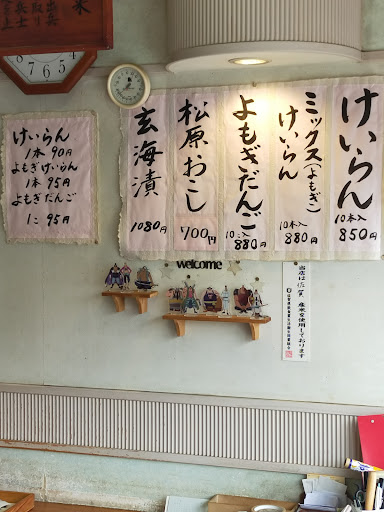 けいらん
10本入
850円
ミックス(よもぎ)
けいらん
10本入
880円
よもぎだんご
10コ入
880円
松原おこし
700円
玄海漬
1080円
けいらん
1本 90円
よもぎけいらん
1本 95円
よもぎだんご
1コ 95円
welcome
当店は佐賀県産米を使用しております
米